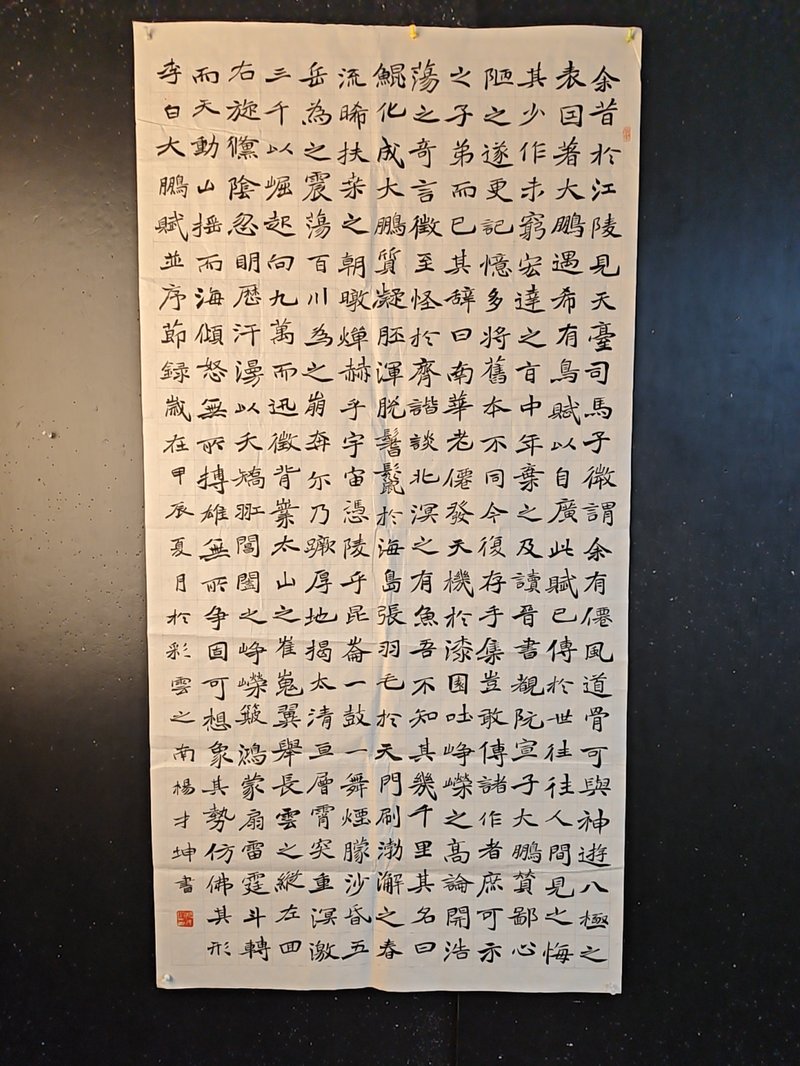 余昔於江陵見天臺司馬子微謂余有僊風道骨可與神遊八極之
表囙著大鵬遇希有鳥賦以自廣此賦已傳於世往往人間見之悔
其少作未窮宏達之旨中年棄之及讀晉書覩阮宣子大鵬賛鄙心
陋之遂更記憶多將舊本不同今復存手集豈敢傳諸作者庶可示
之子弟而已其辭曰南華老僊發天機於漆園吐崢嶸之高論開浩
蕩之奇言徵至怪於齊諧談北溟之有魚吾不知其幾千里其名曰
鯤化成大鵬質凝胚渾脫鬐鬣於海島張羽毛於天門刷渤澥之春
流晞扶桒之朝暾燀赫乎宇宙憑陵乎昆崙一鼓一舞煙朦沙昏五
岳為之震蕩百川為之崩奔尔乃蹶厚地揭太清亘層霄突重溟激
三千以崛起向九萬而迅徵背嶪太山之崔嵬翼舉長雲之縱左回
右旋儵陰忽明歷汗漫以夭矯羾閶闔之崢嶸簸鴻蒙扇雷霆斗轉
而天動山搖而海傾怒無所搏雄無所争固可想象其勢仿佛其形
李白大鵬賦並序節録歲在甲辰夏月於彩雲之南楊才坤書